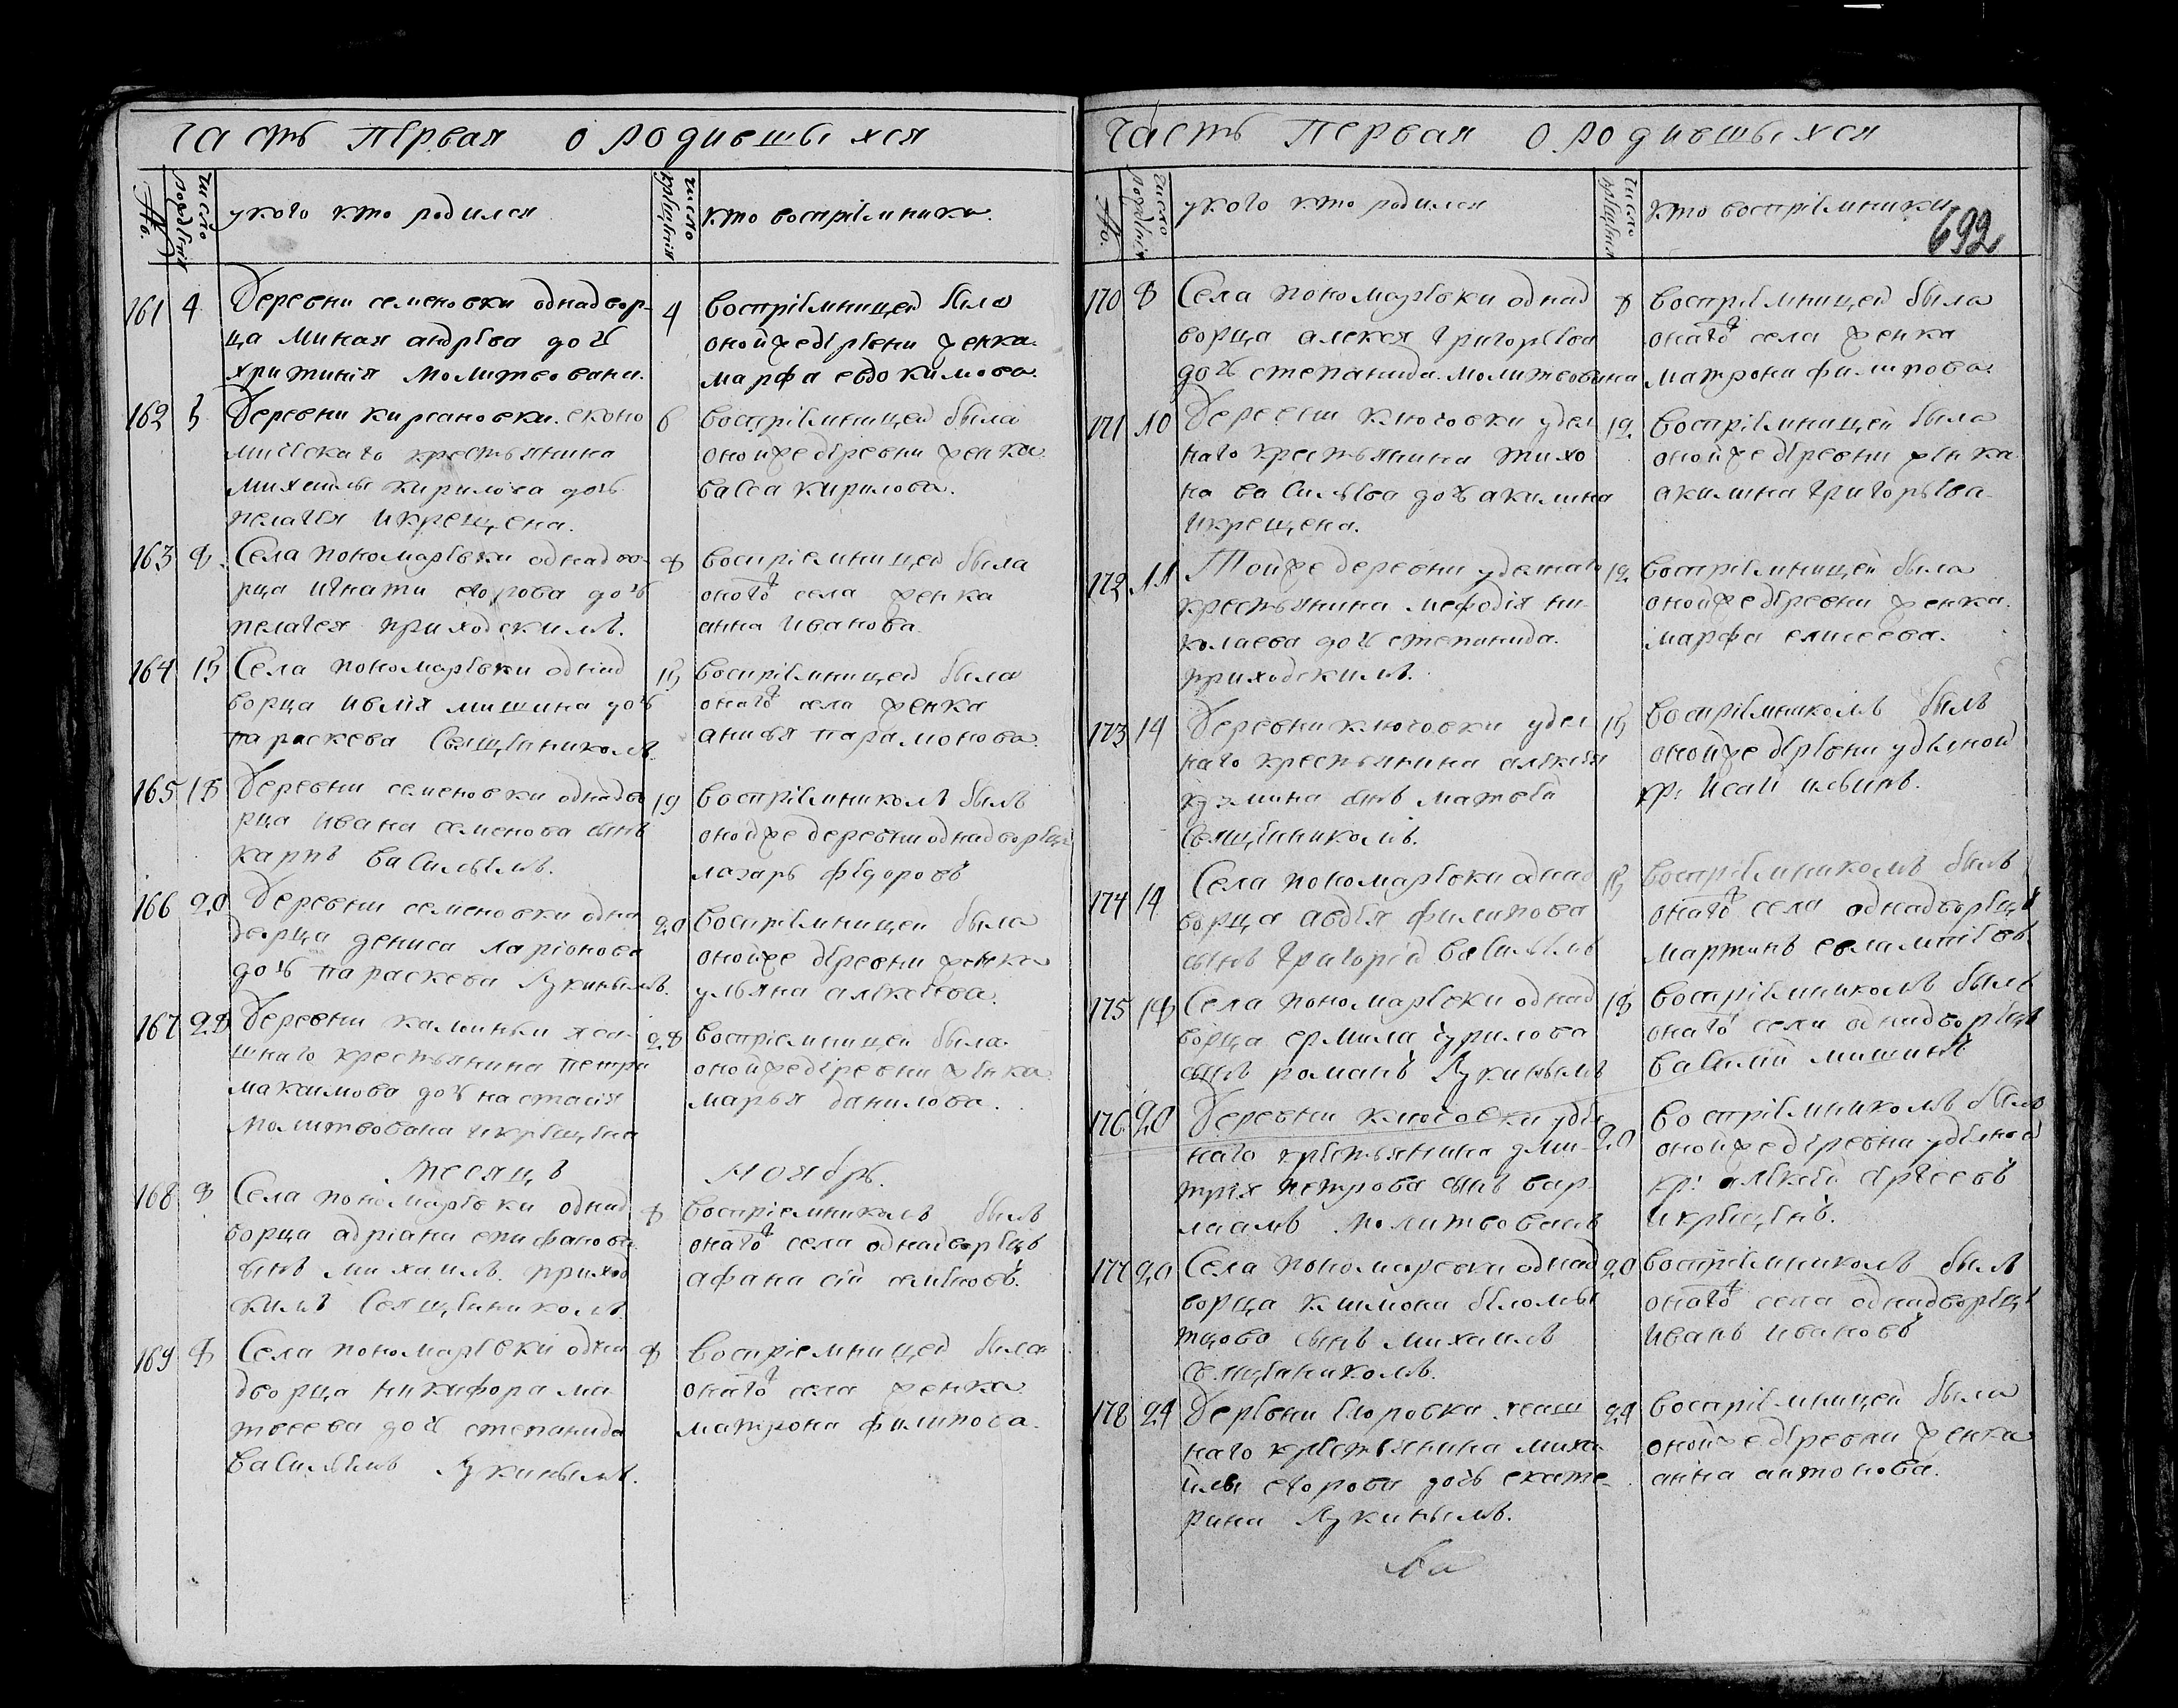 часть первая о родившыхся
№.
число рождения
у кого кто родился
число крещения
кто восприемники.
161 4 Деревни семеновки однадвор-
ца миная андрѣева дочь
христиния молитвована.
4 восприемницей была
оной же деревни женка
марфа евдокимова.
162 5 Деревни кирсановки. эконо
мическаго крестьянина
михайлы кирилова дочь
пелагея и крещена.
6 восприемницей была
оной же деревни женка
васса кирилова.
163 8 Села пономаревки однадво-
рца игнати егорова дочь
пелагея приходскимъ.
8 восприемницей была
онаго ж села женка
анна иванова.
164 15 Села пономаревки однад
ворца мишина дочь
параскева священикомъ
15 восприемницей была
онаго ж села женка
анисья парамонова.
165 18 Деревни семеновки однадво
рца ивана семенова сынъ
карпъ васильемъ.
19 восприемникомъ былъ
оной же деревни однадворецъ
лазарь федоровъ
166 20 Деревни семеновки одна
дворца дениса ларионова
дочь параскева лукинымъ.
20 восприемницей была
оной же деревни женка
ульяна алексеева.
167 28 Деревни калиньки яса-
шнаго крестьянина петра
максимова дочь настасия
молитвована и крещена
28 восприемницей была
оной же деревни женка
марья данилова.
месяцъ ноябрь.
168 8 Села пономаревки однад
ворца адриана епифанова
сынъ михаилъ. приход
скимъ священикомъ
8 восприемникомъ былъ
онаго ж села однадворецъ
афанасий семеновъ.
169 8 Села пономаревки одна
дворца никифора ма
твеева дочь степанида
васильемъ лукинымъ.
8 восприемницей была
онаго ж села женка
матрона филипова.
часть первая о родившыхся
№.
число рождения
у кого кто родился
число крещения
кто восприемники
692
170 8 Села пономаревки однад
ворца алексея григорьева
дочь степанида. молитвована
8 восприемницей была
онаго ж села женка
матрона филипова.
171 10 Деревни ключовки удел
наго крестьянина тихо
на васильева дочь акилина
и крещена.
12 восприемницей была
оной же деревни женка
акилина григорьева.
172 11 Той же деревни уделнаго
крестьянина мефодия ни-
колаева дочь степанида.
приходскимъ.
12 восприемницей была
оной же деревни женка.
марфа елисеева.
173 14 Деревни ключовки удел
наго крестьянина алексея
кузмина сынъ матвей
священникомъ.
15 восприемникомъ былъ
оной же деревни уделной
кр: исай ильинъ.
174 14 Села пономаревки однад
ворца авдея филипова
сынъ григорей васильемъ
15 восприемникомъ былъ
онаго ж села однадворецъ
мартинъ евлампиевъ.
175 18 Села пономаревки однад
ворца ермила чурилова
сынъ романъ лукинымъ
18 восприемникомъ былъ
онаго ж села однадворецъ
василий мишинъ
176 20 Деревни ключовки уде
наго крестьянина дми
трия петрова сынъ вар
лаамъ молитвованъ
20 восприемникомъ былъ
оной же деревни уделной
кр: алексей сергеевъ
и крещенъ.
177 20 Села пономаревки однад
ворца киимона беломы
тцова сынъ михаилъ
священикомъ.
20 восприемникомъ былъ
онаго ж села однадворецъ
иванъ ивановъ
178 24 Деревни егоровки ясаш
наго крестьянина миха
йлы егорова дочь екате-
рина лукинымъ.
24 восприемницей была
оной же деревни женка
анна антонова.